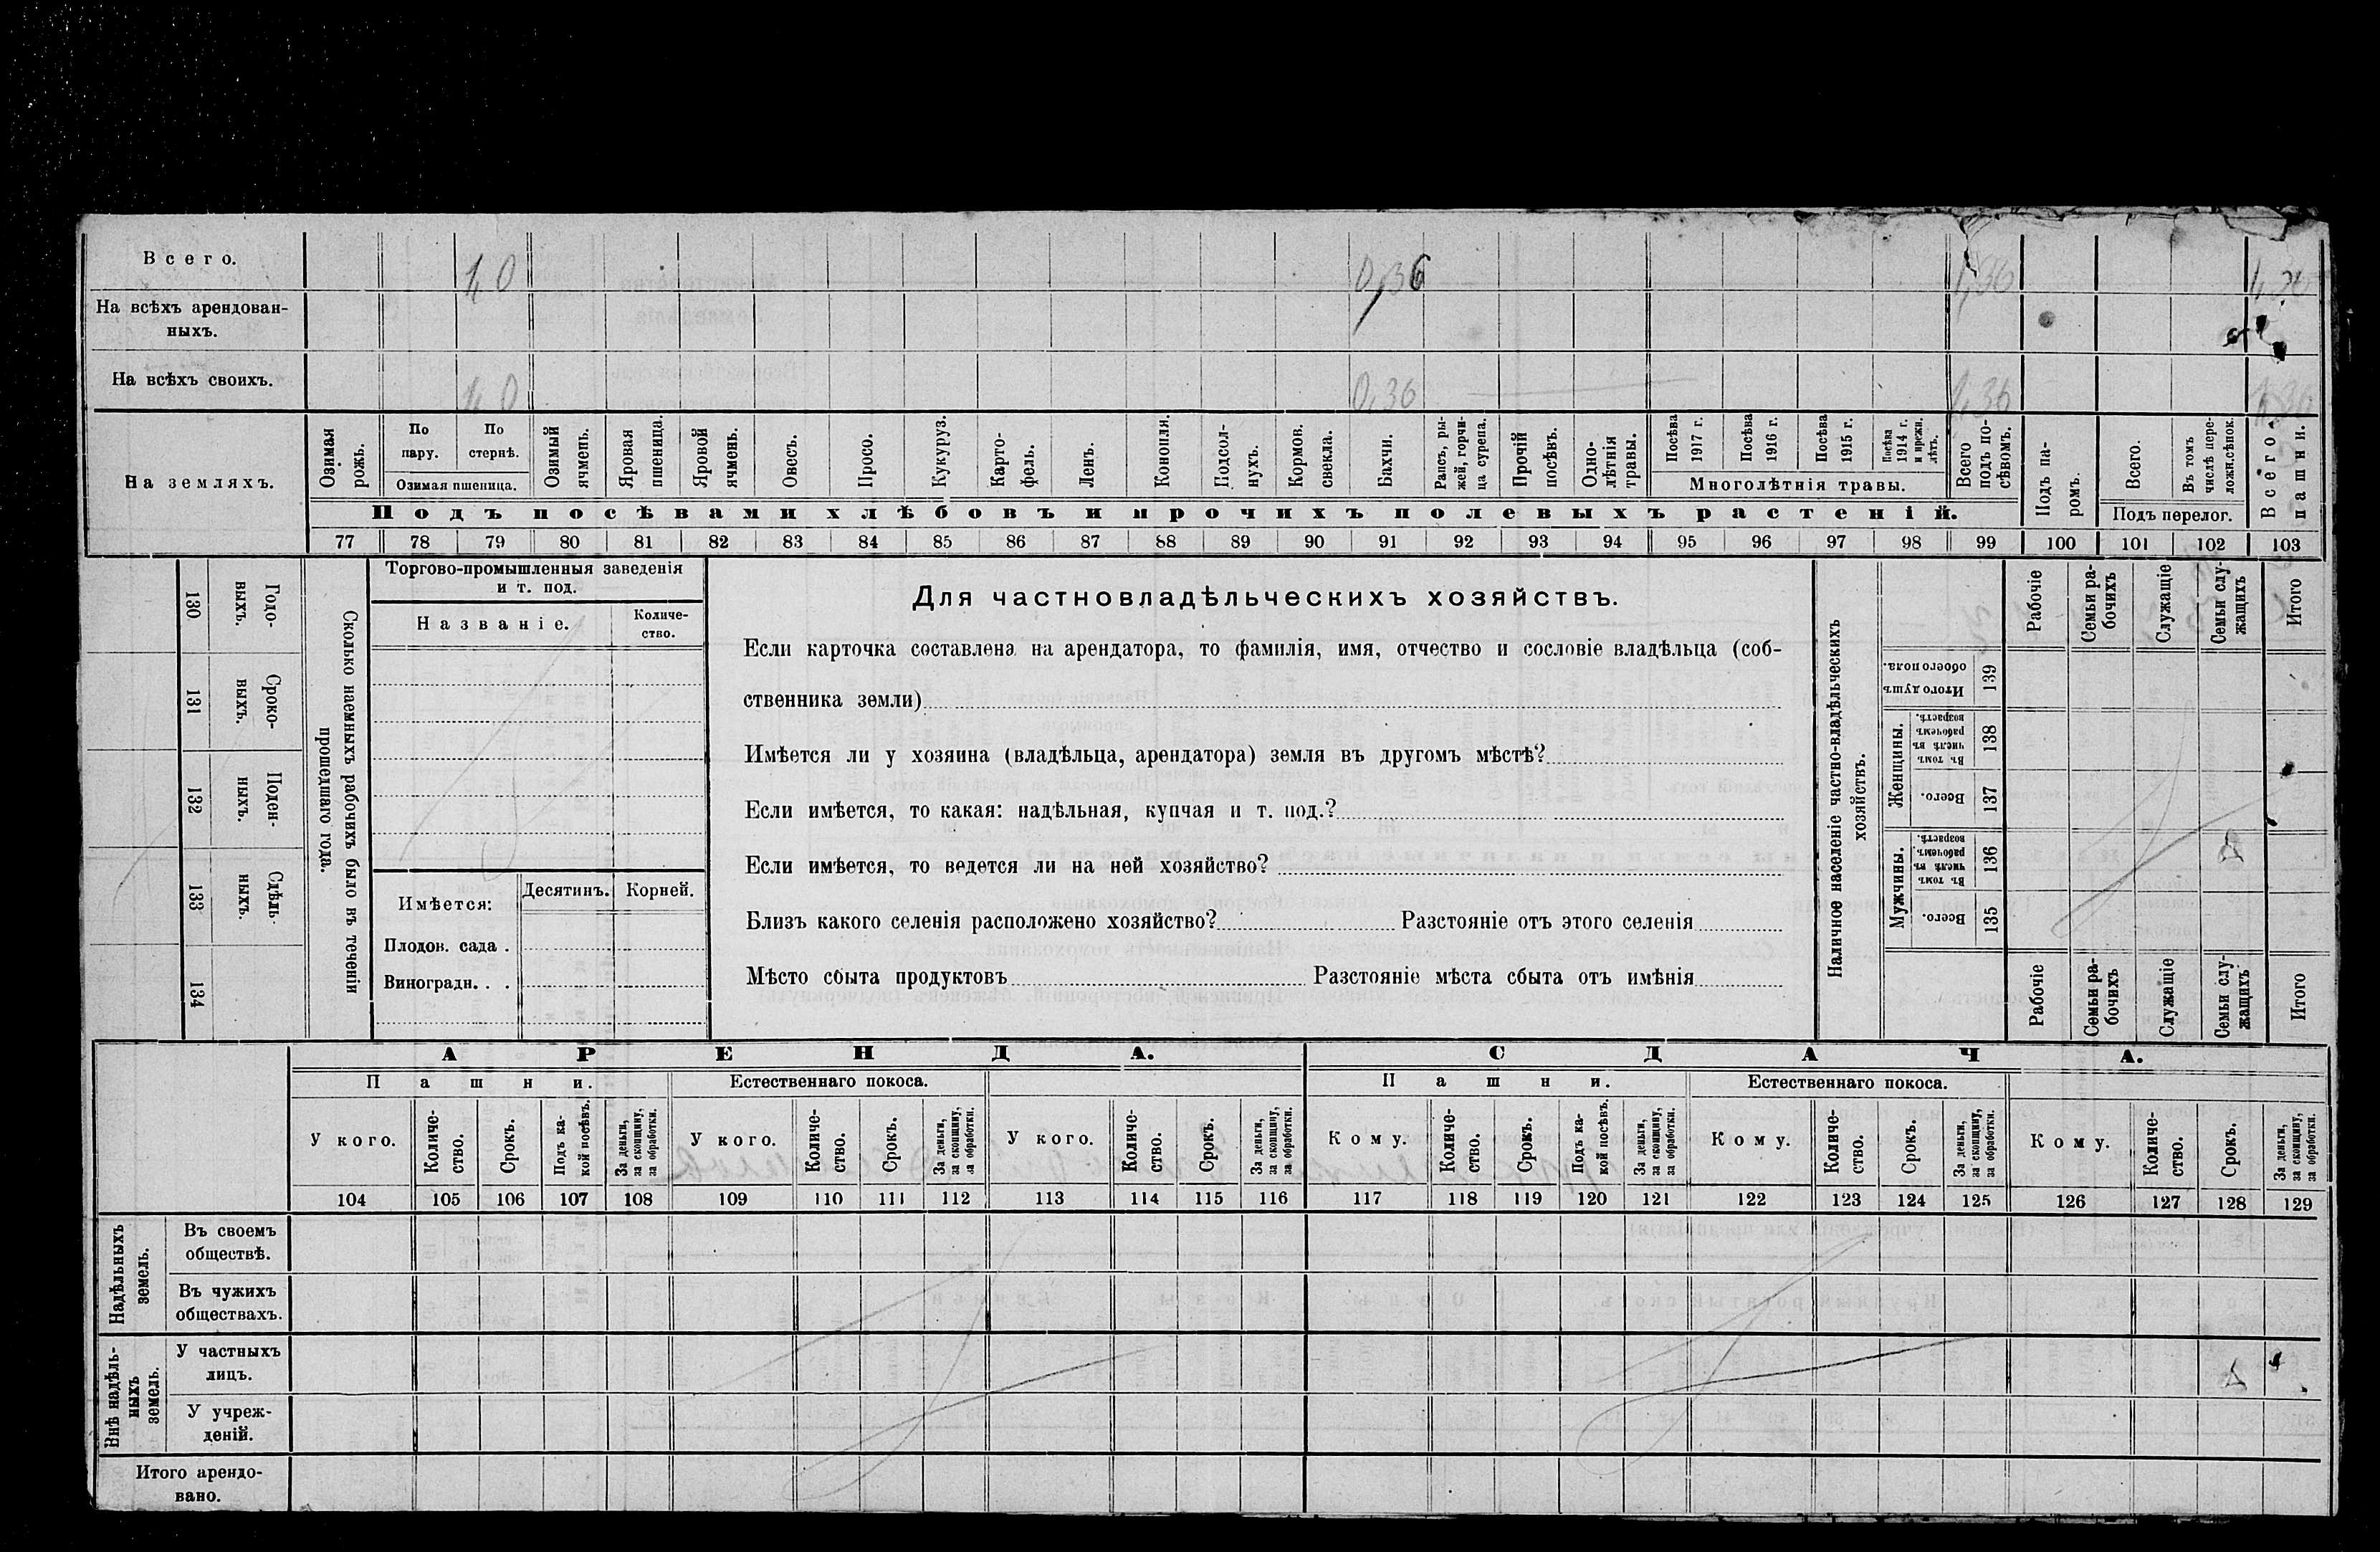 Всего. 1,0 0,36 1,36 1,36
На всѣхъ арендован-
ныхъ.
На всѣхъ своихъ. 1,0 0,36 1,36 1,36
На земляхъ.
Озимая рожь.
По пару.
По стернѣ.
Озимая пшеница.
Озимый ячмень.
Яровая пшеница.
Яровой ячмень.
Овесъ.
Просо.
Кукуруз.
Карто-
фель.
Ленъ.
Конопля.
Подсол-
нухъ.
Кормов. свекла.
Бахчи.
Рапсъ, ры-
жей, горчи-
ца сурепа.
Прочій посѣвъ.
Одно-
лѣтнія травы.
Посѣва 1917 г.
Посѣва 1916 г.
Посѣва 1915 г.
Посѣва 1914 г.
и прежн. лѣтъ.
Многолѣтнія травы.
Всего подъ по-
сѣвомъ.
Подъ па-
ромъ.
Всего.
Въ томъ числѣ пере-
ложн.сѣнок.
Подъ перелог.
Всего пашни.
Подъ посѣвами хлѣбовъ и прочихъ полевыхъ растеній.
77 78 79 80 81 82 83 84 85 86 87 88 89 90 91 92 93 94 95 96 97 98 99 100 101 102 103
130 Годо-
выхъ.
131 Сроко-
выхъ.
132 Поден-
ныхъ.
133 Сдѣль-
ныхъ.
134
Сколько наемныхъ рабочихъ было въ теченіи
прошедшаго года.
Торгово-промышленныя заведенія
и т. под.
Названіе.
Количе-
ство.
Имѣется: Десятинъ. Корней.
Плодов. сада .
Виноградн. . .
Для частновладѣльческихъ хозяйствъ.
Если карточка составлена на арендатора, то фамилія, имя, отчество и сословіе владѣльца (соб-
ственника земли)
Имѣется ли у хозяина (владѣльца, арендатора) земля въ другомъ мѣстѣ?
Если имѣется, то какая: надѣльная, купчая и т. под.?
Если имѣется, то ведется ли на ней хозяйство?
Близъ какого селенія расположено хозяйство? Разстояніе отъ этого селенія
Мѣсто сбыта продуктовъ Разстояніе мѣста сбыта отъ имѣнія
Наличное населеніе частно-владѣльческихъ
хозяйствъ.
Рабочіе
Семьи ра-
бочихъ
Служащіе
Семьи слу-
жащихъ
Итого
Итого душъ обоего пола. 139
Женщины.
Въ томъ числѣ въ рабочемъ возрастѣ. 138
Всего. 137
Мужчины.
Въ томъ числѣ въ рабочемъ возрастѣ. 136
Всего. 135
Рабочіе
Семьи ра-
бочихъ
Служащіе
Семьи слу-
жащихъ
Итого
АРЕНДА. СДАЧА.
Пашни. Естественнаго покоса. Пашни. Естественнаго покоса.
У кого.
Количе-
ство.
Срокъ.
Подъ ка-
кой посѣвъ.
За деньги,
за скопщину,
за обработки.
У кого.
Количе-
ство.
Срокъ.
За деньги,
за скопщину,
за обработки.
У кого.
Количе-
ство.
Срокъ.
За деньги,
за скопщину,
за обработки.
Кому.
Количе-
ство.
Срокъ.
Подъ ка-
кой посѣвъ.
За деньги,
за скопщину,
за обработки.
Кому.
Количе-
ство.
Срокъ.
За деньги,
за скопщину,
за обработки.
Кому.
Количе-
ство.
Срокъ.
За деньги,
за скопщину,
за обработки.
104 105 106 107 108 109 110 111 112 113 114 115 116 117 118 119 120 121 122 123 124 125 126 127 128 129
Надѣльныхъ
земель.
Въ своемъ
обществѣ.
Въ чужихъ
обществахъ.
Внѣ надѣль-
ныхъ
земель.
У частныхъ
лицъ.
У учреж-
деній.
Итого арендо-
вано.